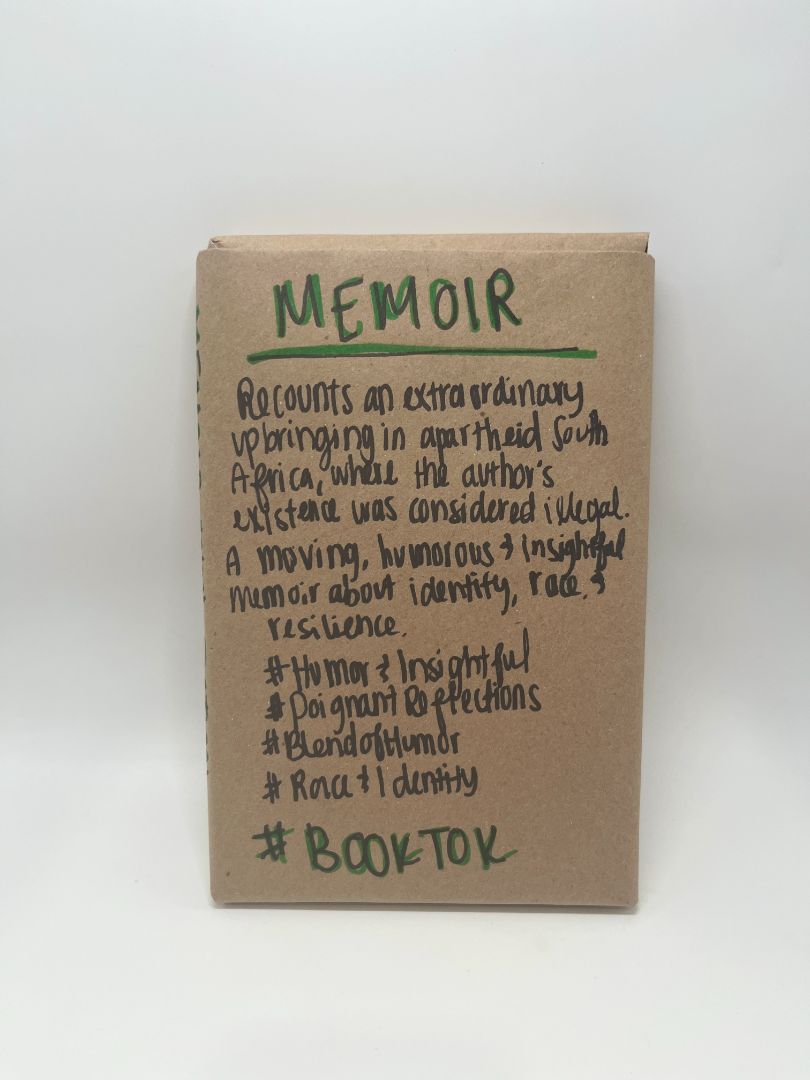 MEMOIR
Recounts an extraordinary
upbringing in apartheid South
Africa, where the author's
existence was considered illegal.
A moving, humorous & insightful
memoir about identity, race, &
resilience.
# Humor & Insightful
# Poignant Reflections
# BlendofHumor
# Race & Identity
# BOOKTOK